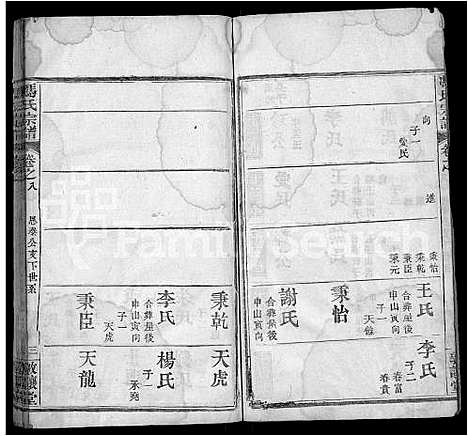 向
子一
愛民
進
秉怡
秉乾
秉臣
秉元
王氏
合葬屋後
申山寅向
子一
天錐
李氏
子二
春富
春貴
秉怡
謝氏
合葬屋後
申山寅向
秉乾
天虎
李氏
合葬屋後
申山寅向
子一
天虎
楊氏
子二
承堯
秉臣
天龍
馮氏宗譜
卷之八
思泰公支下世系
三
敦讓堂
FamilySearch